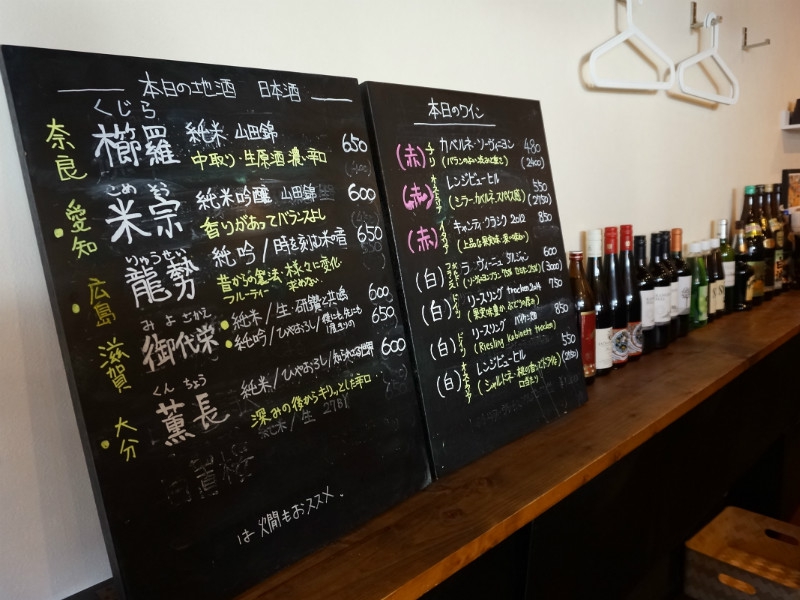 本日の地酒 日本酒
くじら
奈良 櫛羅 純米 山田錦 650
中取り・生原酒 濃い辛口
こめ そう
愛知 米宗 純米吟醸 山田錦 600
香りがあってバランスよし
りゅうせい
広島 龍勢 純吟/時を刻む木の音 650
昔からの製法・様々に変化
フルーティー 求めない
み よ さかえ
滋賀 御代栄 純米/生・研鑽と共鳴 600
純吟/ひやおろし 650
くん ちょう
大分 薫長 純米/ひやおろし/知られざる世界 600
深みの後からキリッとした辛口
純米/生 27BY
は燗もおススメ.
本日のワイン
(赤) チリ カベルネ・ソーヴィニヨン 480
(バランスのよい渋みと重さ) (2400)
(赤) オーストラリア レンジビューヒル 550
(シラー・カベルネ スパイス感) (2750)
(赤) イタリア キャンティ クラシコ 2012 850
(上品な果実味・深い味わい)
(白) ラ・ヴィーニュ 600
(3000)
(白) ドイツ リースリング trocken 2014 750
(果実味豊か ぶどうの厚み)
(白) ドイツ リースリング 850
(Riesling Kabinett trocken)
(白) オーストラリア レンジビューヒル 550
(シャルドネ・桃の香りでドライな (2750)
口当たり)